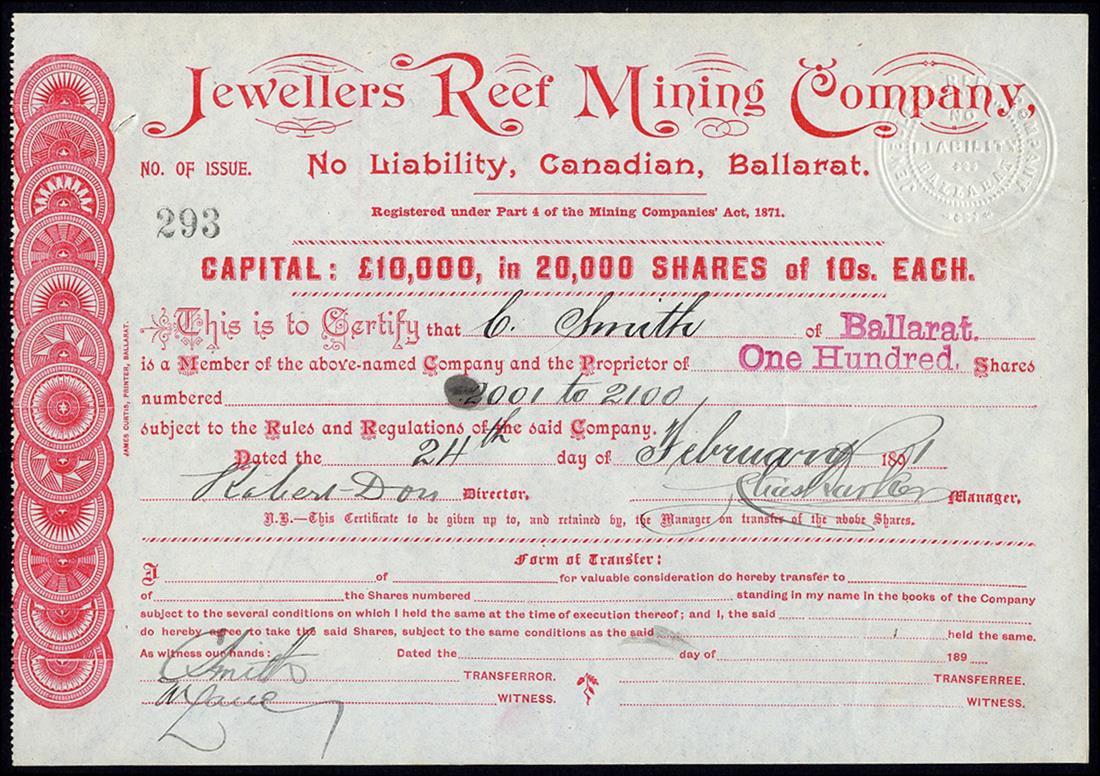 Jewellers Reef Mining Company,
NO. OF ISSUE.
No Liability, Canadian, Ballarat.
293
Registered under Part 4 of the Mining Companies' Act, 1871.
CAPITAL: £10,000, in 20,000 SHARES of 10s. EACH.
This is to Certify that C. Smith of Ballarat.
is a Member of the above-named Company and the Proprietor of One Hundred. Shares
numbered 2001 to 2100
subject to the Rules and Regulations of the said Company.
Dated the 24th day of February 1891
Robert Don Director, Manager,
N.B.—This Certificate to be given up to, and retained by, the Manager on transfer of the above Shares.
Form of Transfer:
I of for valuable consideration do hereby transfer to
of the Shares numbered standing in my name in the books of the Company
subject to the several conditions on which I held the same at the time of execution thereof; and I, the said
do hereby agree to take the said Shares, subject to the same conditions as the said held the same.
As witness our hands: Dated the day of 189
C Smith TRANSFERROR. TRANSFERREE.
WITNESS. WITNESS.
JAMES CURTIS, PRINTER, BALLARAT.
JEWELLERS REEF MINING COMPANY
NO
LIABILITY
BALLARAT